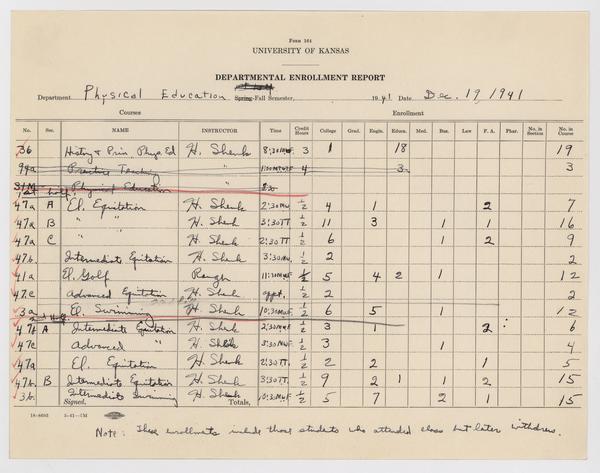 Form 164
UNIVERSITY OF KANSAS
DEPARTMENTAL ENROLLMENT REPORT
Department Physical Education Spring-Fall Semester, 1941 Date Dec. 19, 1941
Courses Enrollment
No. Sec. NAME INSTRUCTOR Time Credit Hours College Grad. Engin. Educa. Med. Bus. Law F. A. Phar. No. in Section No. in Course
36 History & Prin Phys. Ed H. Shenk 8:30 MWF 3 1 18 19
94a Practice Teaching " 1:30 MTWTF 4 3 3
31M Physical Education " 8:30
1st half
47a A El. Equitation H. Shenk 2:30 MW 1/2 4 1 2 7
47a B " " H. Shenk 3:30 TT 1/2 11 3 1 1 16
47a C " " H. Shenk 2:30 TT 1/2 6 1 2 9
47b Intermediate Equitation H. Shenk 3:30 MW 1/2 2 2
41a El. Golf Rangh 11:30 MWF 1/2 5 4 2 1 12
47c Advanced Equitation H. Shenk appt. 1/2 2 2
3a El. Swimming H. Shenk 10:30 MWF 1/2 6 5 1 12
2nd Half
47b A Intermediate Equitation H. Shenk 2:30 MWF 1/2 3 1 2 6
47c Advanced " H. Shenk 3:30 MWF 1/2 3 1 4
47a El. Equitation H. Shenk 2:30 TT. 1/2 2 2 1 5
47b B Intermediate Equitation H. Shenk 3:30 TT 1/2 9 2 1 1 2 15
3b. Intermediate Swimming H. Shenk 10:30 MWF 1/2 5 7 2 1 15
Signed, Totals,
18-8693 5-41-1M
Note: These enrollments include those students who attended class but later withdrew.